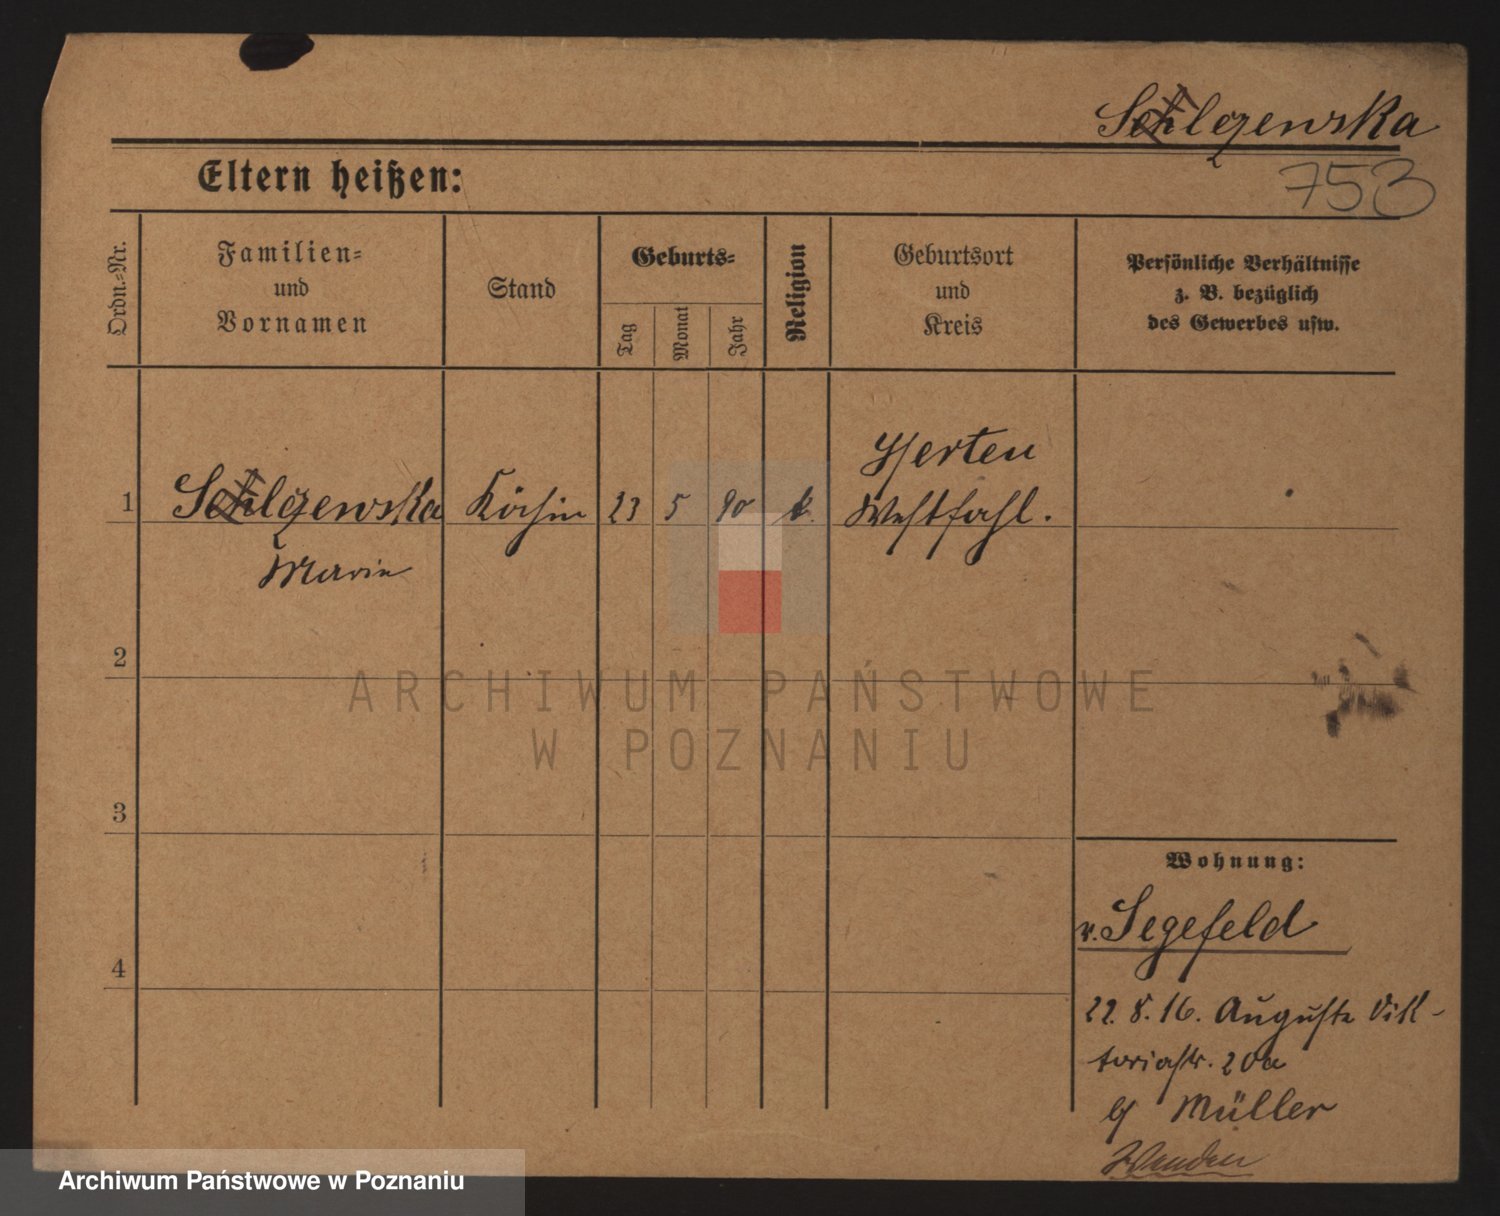 Szelgzewska
753
Eltern heißen:
Ordn.-Nr.
Familien-
und
Vornamen
Stand
Geburts-
Tag
Monat
Jahr
Religion
Geburtsort
und
Kreis
Persönliche Verhältnisse
z. B. bezüglich
des Gewerbes usw.
1
Köchin
23
5
90
k.
Herten
Westfahl.
Marie
2
3
4
ARCHIWUM PAŃSTWOWE
W POZNANIU
Wohnung:
v. Segefeld
22. 8. 16. Auguste Vik-
toriastr. 20a
Müller
Archiwum Państwowe w Poznaniu